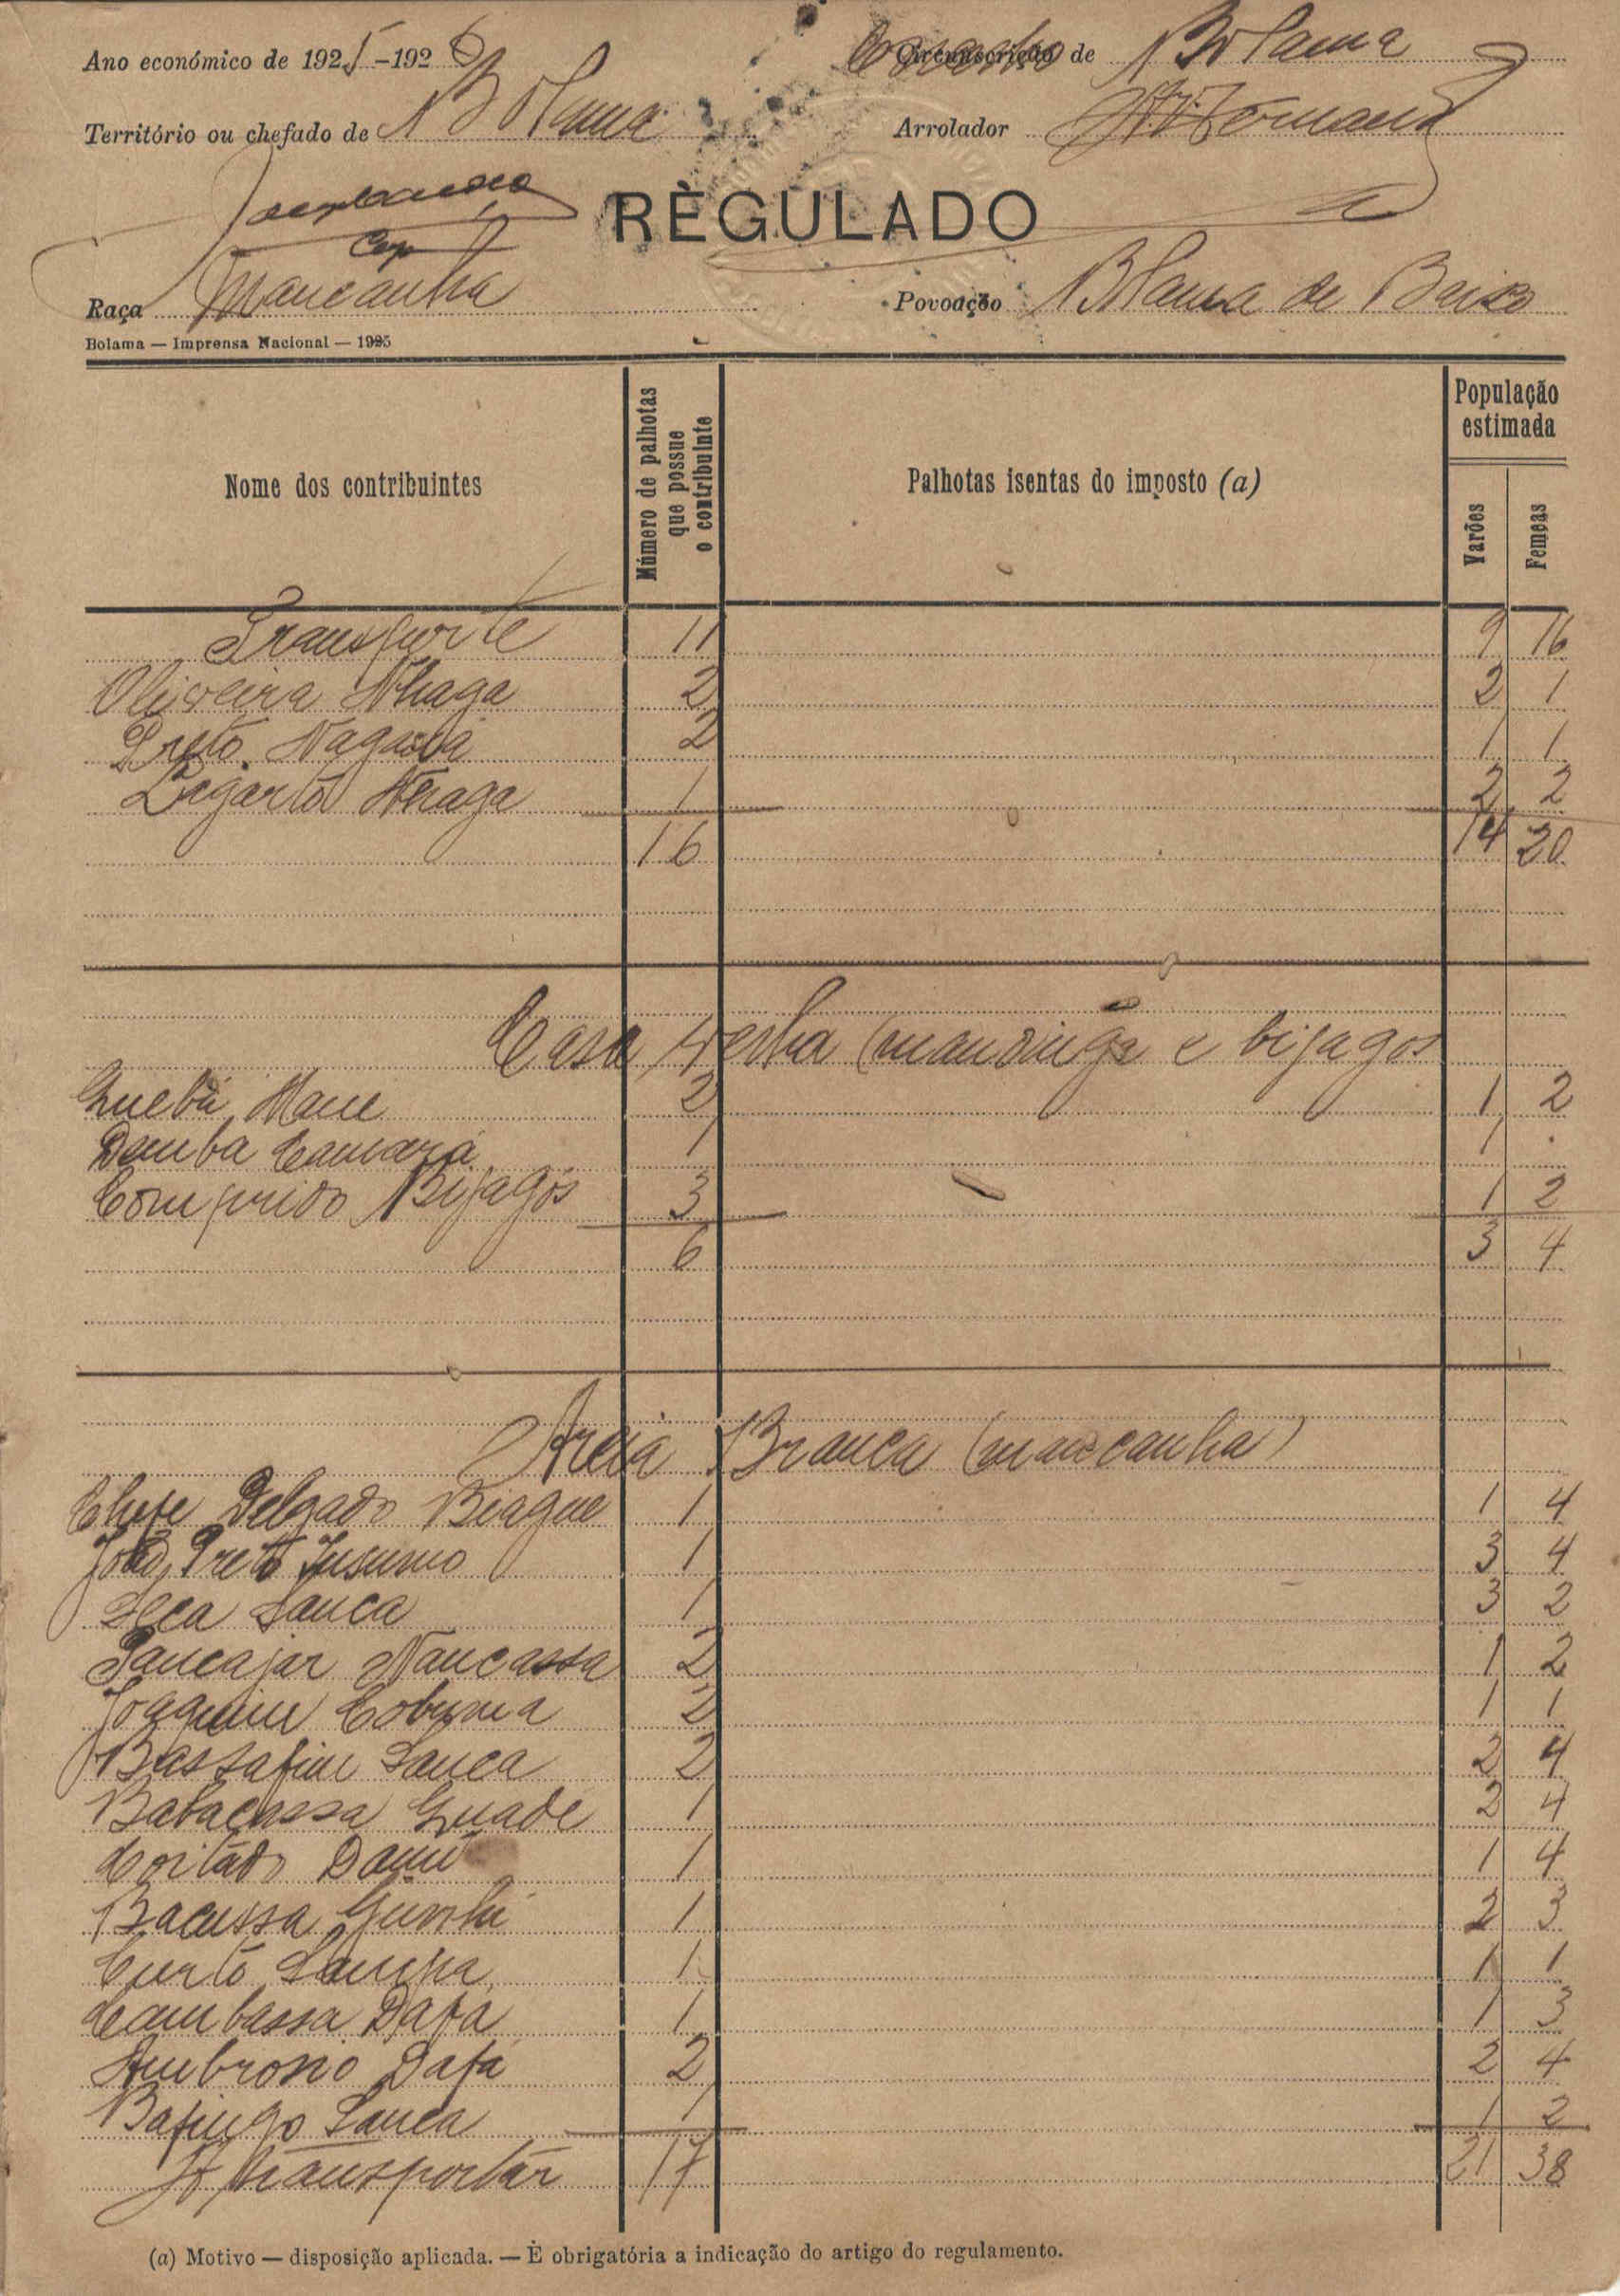 Ano económico de 1925-1926 Circunscrição de Bolama
Território ou chefado de Bolama Arrolador
RÈGULADO
Raça Mancanha Povoação Bolama de Baixo
Bolama — Imprensa Nacional — 1925
Nome dos contribuintes
Número de palhotas que possue o contribuinte
Palhotas isentas do imposto (a)
População estimada
Varões
Femeas
Transporte 11 9 16
Oliveira Nhaga 2 2 1
Preto 2 1 1
Lagarto Nhaga 1 2 2
16 14 20
Casa Velha (mandinga e bijagos
Quebá Mane 2 1 2
Demba Camará 1 1 .
Comprido Bijagós 3 1 2
6 3 4
Areia Branca (mancanha)
Chefe Delgado Biague 1 1 4
João Preto 1 3 4
Sanca 1 3 2
Nancassa 2 1 2
Joaquim 2 1 1
Bassafim Sanca 2 2 4
1 2 4
Coitado 1 1 4
Bacussa 1 2 3
Curto 1 1 1
Cambassa Dafá 1 1 3
Ambrosio Dafá 2 2 4
Sanca 1 1 2
A transportar 17 21 38
(a) Motivo — disposição aplicada. — É obrigatória a indicação do artigo do regulamento.